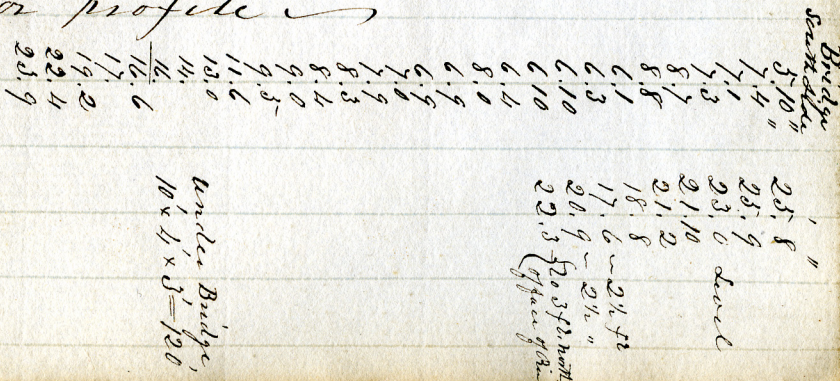 or profile
Bridge
South Side
5.10"
7.4"
7.1
7.3
8.7
8.8
6.1
6.3
6.10
6.10
6.4
8.0
6.9
6.9
7.0
7.9
8.3
8.4
9.0
9.5
11.6
13.0
14.
16.
16.6
17.
19.2
22.4
23.9
' "
25.8
25.9
23.0 Level
21.10
21.2
18.8
17.6 ~ 2½ ft
20.9 ~ 2½ "
22.3 { 3 ft. north
of face of
Under Bridge
10' x 4' x 3' = 120'